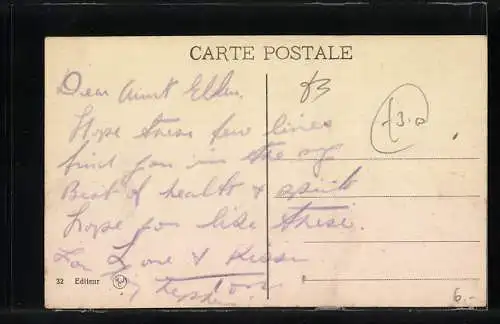 CARTE POSTALE
Dear Aunt Ellen.
Hope these few lines
find you in the
Best of health & spirits
Hope you like these.
Love & Kisses
32 Editeur
6.-